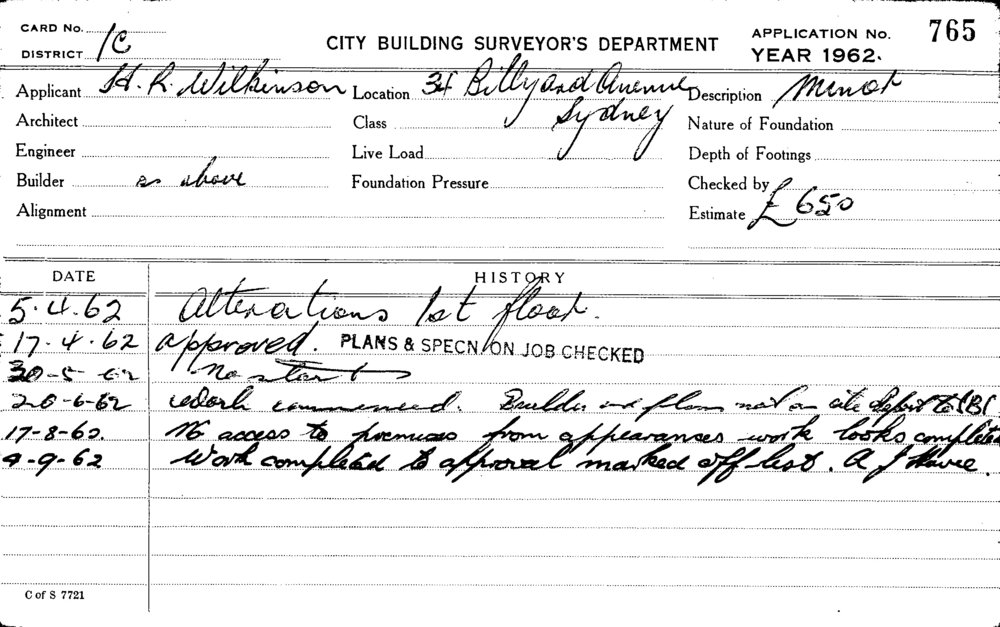 CARD No.
DISTRICT 1C
CITY BUILDING SURVEYOR'S DEPARTMENT
APPLICATION No. 765
YEAR 1962.
Applicant H. R. Wilkinson Location 34 Billyard Avenue Description Minor
Architect Class Sydney Nature of Foundation
Engineer Live Load Depth of Footings
Builder as above Foundation Pressure Checked by
Alignment Estimate £650
DATE HISTORY
5.4.62 Alterations 1st floor.
17.4.62 approved. PLANS & SPECN. ON JOB CHECKED
30-5-62 No start
20-6-62 Work commenced. Builder and plans not on site Report to
17-8-62. No access to premises from appearances work looks completed
4-9-62 Work completed to approval marked off list. A J
C of S 7721